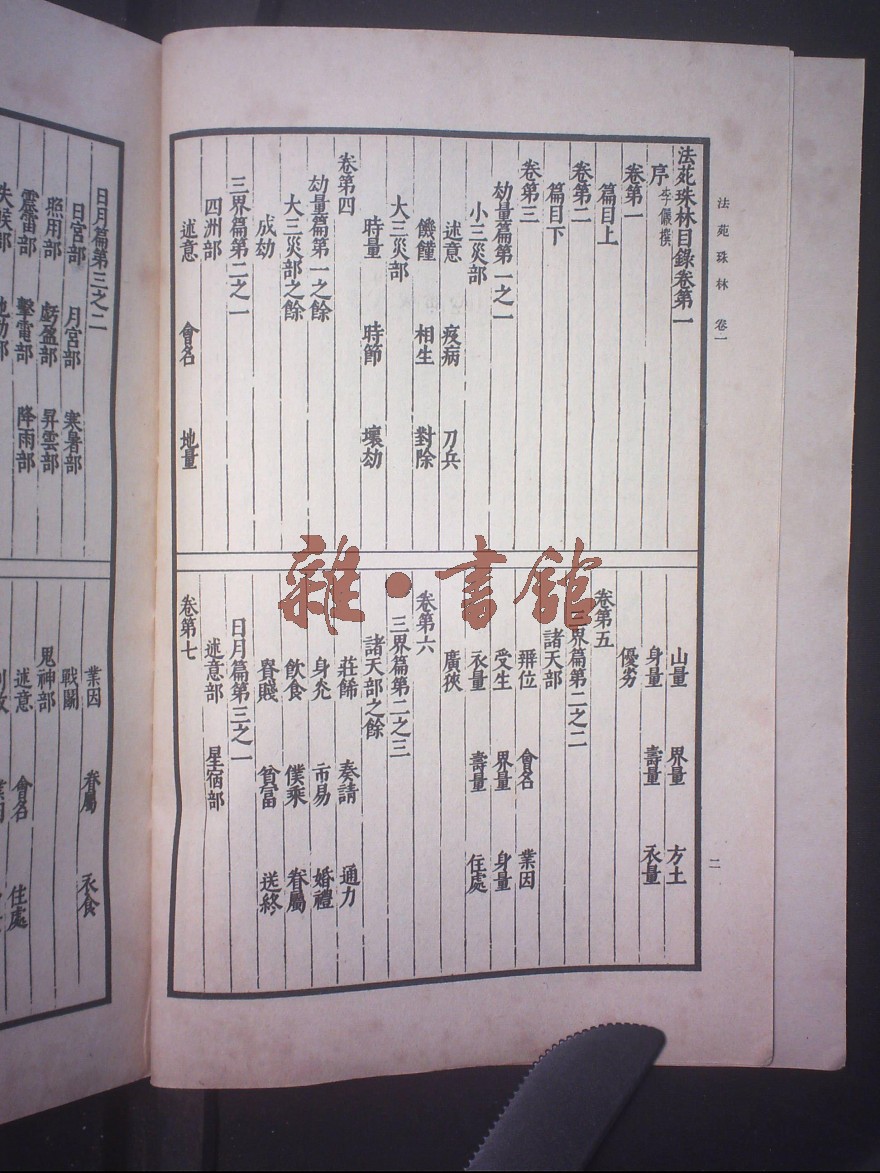 法苑珠林 卷一
二
法苑珠林目錄卷第一
序 李儼撰
卷第一
篇目上
卷第二
篇目下
卷第三
劫量篇第一之一
小三災部
述意 疫病 刀兵
饑饉 相生 對除
大三災部
時量 時節 壞劫
卷第四
劫量篇第一之餘
大三災部之餘
成劫
三界篇第二之一
四洲部
述意 會名 地量
山量 界量 方土
身量 壽量 衣量
優劣
卷第五
三界篇第二之二
諸天部
辨位 會名 業因
受生 界量 身量
衣量 壽量 住處
廣狹
卷第六
三界篇第二之三
諸天部之餘
莊飾 奏請 通力
身光 市易 婚禮
飲食 僕乘 眷屬
貴賤 貧富 送終
日月篇第三之一
述意部 星宿部
卷第七
日月篇第三之二
日宮部 月宮部 寒暑部
照用部 虧盈部 昇雲部
震雷部 擊電部 降雨部
業因 眷屬 衣食
戰鬭
鬼神部
述意 會名 住處
雜·書館